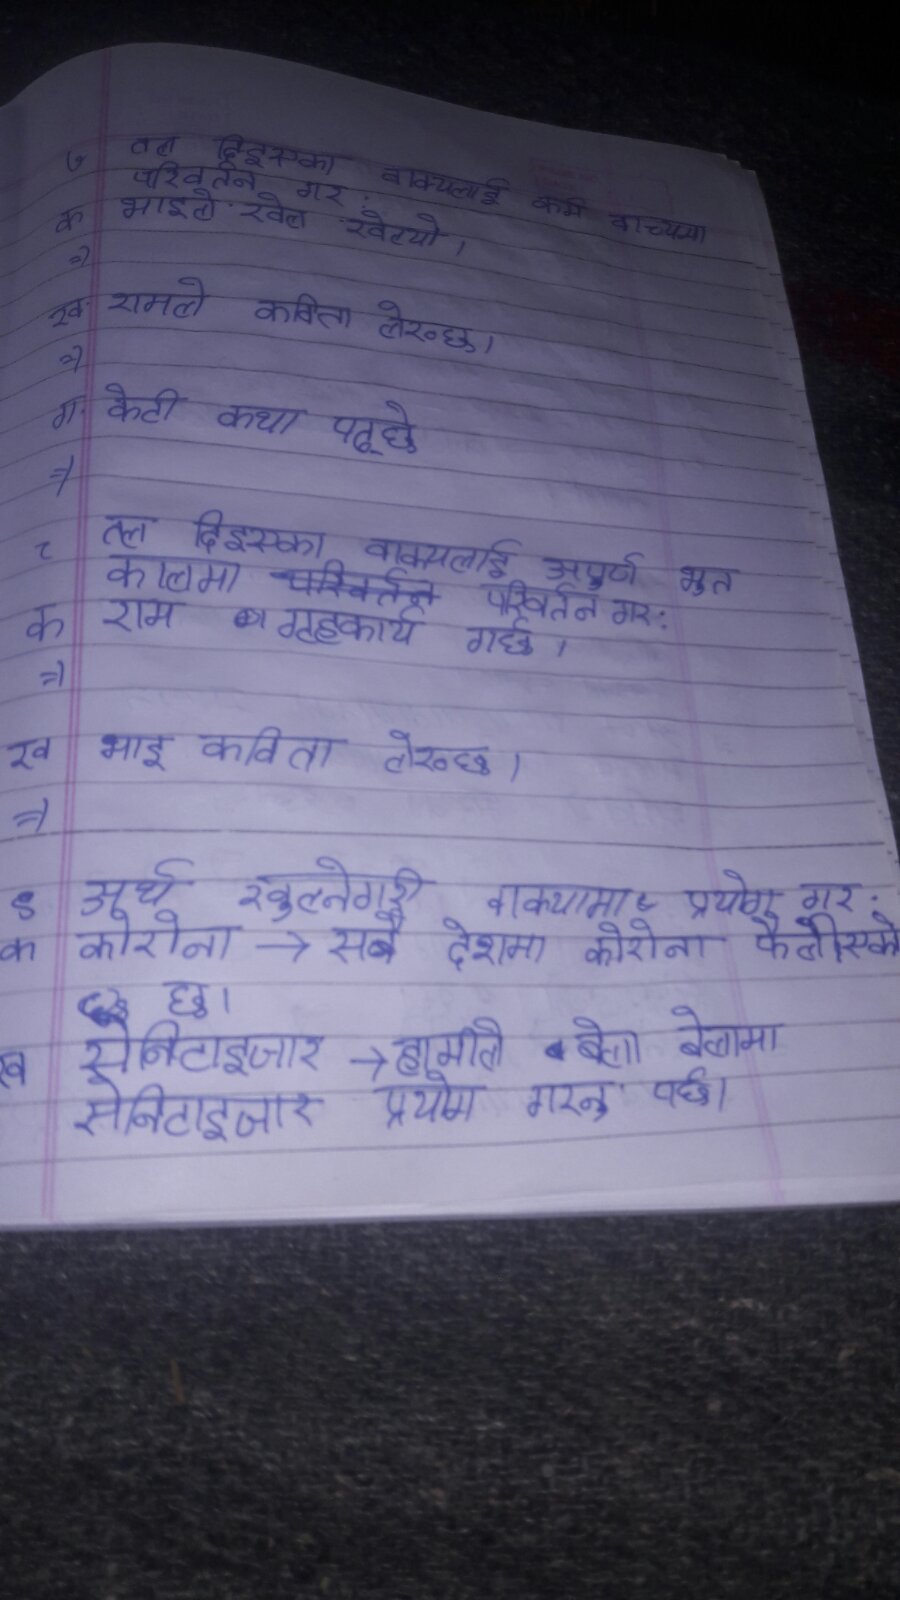 ७ तल दिइएका वाक्यलाई कर्म वाच्यमा
परिवर्तन गर:
क भाइले खेल खेल्यो ।
=)
ख. रामले कविता लेख्छ।
=)
ग. केटी कथा पढ्छे
=)
८ तल दिइएका वाक्यलाई अपुर्ण भुत
कालमा परिवर्तन गर:
क राम गृहकार्य गर्छ ।
=)
ख भाइ कविता लेख्छ ।
=)
९ अर्थ खुल्नेगरी वाक्यामा प्रयोग गर.
क कोरोना → सबै देशमा कोरोना फैलीएको
छ।
ख सेनिटाइजार → हामीले बेला बेलामा
सेनिटाइजार प्रयोग गरनु पर्छ।